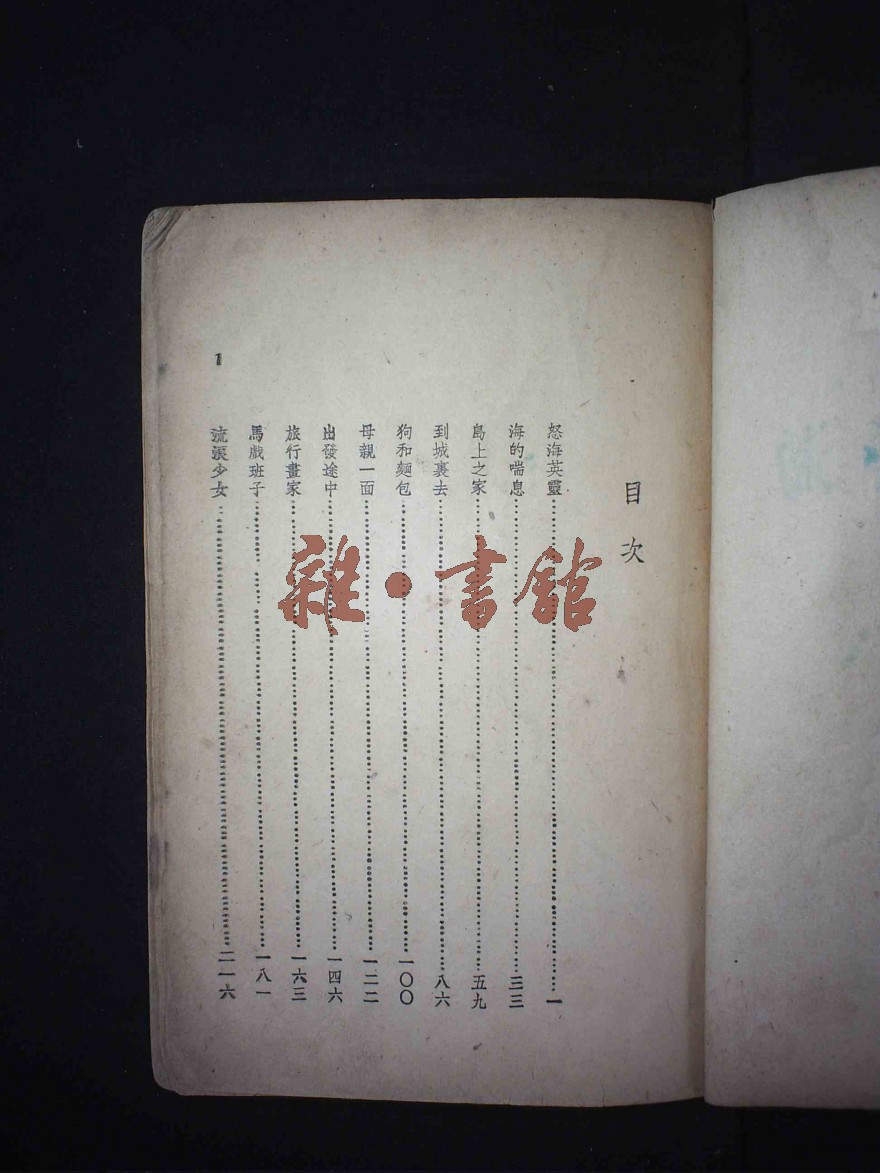 目次
怒海英靈……一
海的喘息……三三
島上之家……五九
到城裏去……八六
狗和麵包……一〇〇
母親一面……一二二
出發途中……一四六
旅行畫家……一六三
馬戲班子……一八一
流浪少女……二一六
1
雜·書館